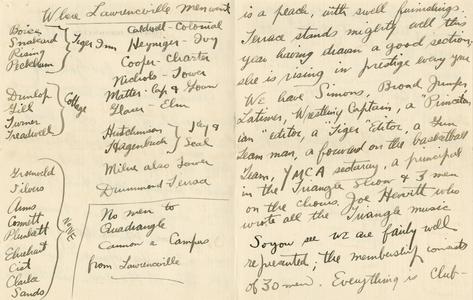 Where Lawrenceville men went
Boice
Rising
Peckham
Tiger Inn
Dunlop
Gill
Turner
Treadwell
Cottage
Griswold
Silvers
Arms
Plunkett
Cist
Clarke
Sands
NONE
Caldwell - Colonial
Heyniger - Ivy
Cooper - Charter
Nichols - Tower
Matter - Cap & Gown
- Elm
Hutchinson
Hagenbuch
Key &
Seal
Milne also Tower
Drummond Terrace
No men to
Quadrangle
Cannon & Campus
from Lawrenceville
is a peach, with swell furnishings.
Terrace stands mighty well this
year having drawn a good section,
she is rising in prestige every year
We have Simons, Broad Jumper,
Latimer, Wrestling Captain, a Princeton
ian" editor, a Tiger" Editor, a Gun
Team man, a forward on the basketball
Team, YMCA secretary, a principal
in the Triangle Show & 3 men
on the chorus, Joe Hewitt who
wrote all the Triangle music
So you see we are fairly well
represented; the membership consists
of 30 men. Everything is Club-